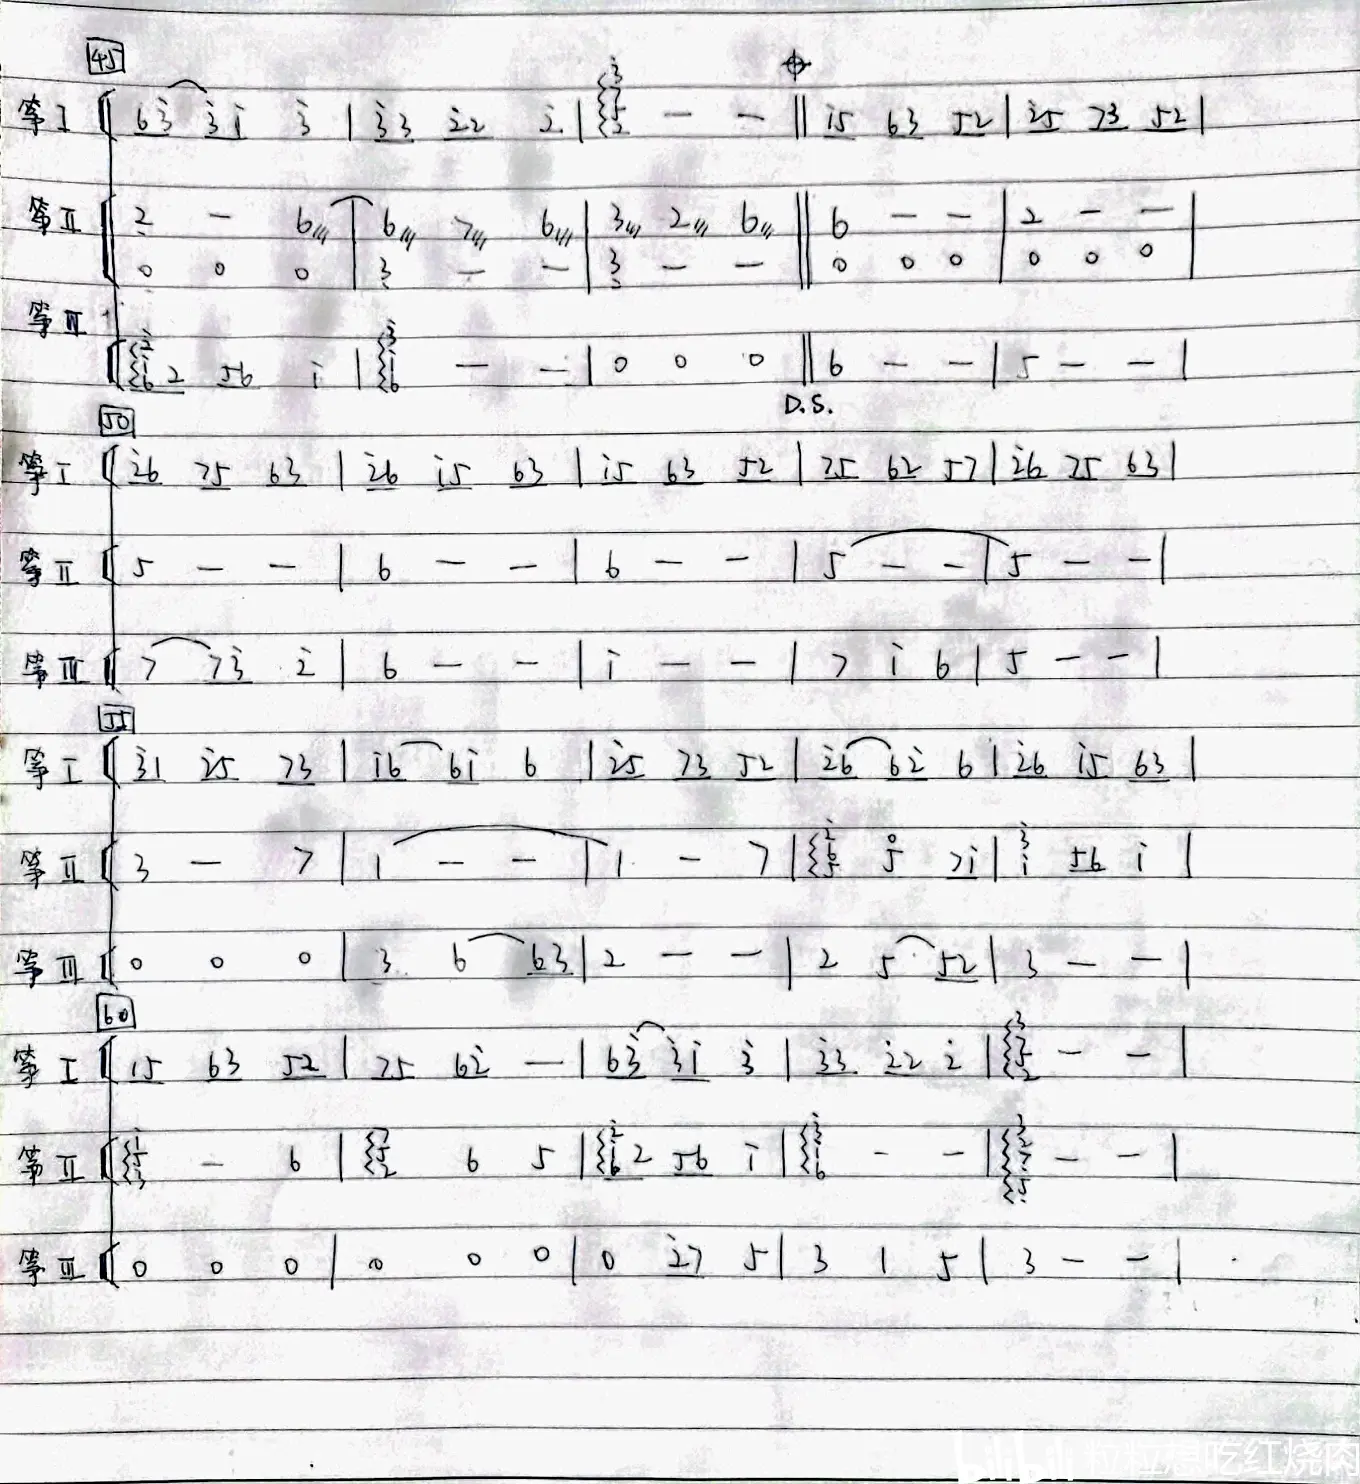 45
筝I 63 31 3 | 33 22 2 | 3 7 5 2 - - || 15 63 52 | 25 73 52 |
筝II 2 - 6/// | 6/// 7/// 6/// | 3/// 2/// 6/// || 6 - - | 2 - - |
0 0 0 | 3 - - | 3 - - || 0 0 0 | 0 0 0 |
筝III
2 1 6 2 56 1 | 3 1 6 - - | 0 0 0 || 6 - - | 5 - - |
D.S.
50
筝I 26 75 63 | 26 15 63 | 15 63 52 | 75 62 57 | 26 75 63 |
筝II 5 - - | 6 - - | 6 - - | 5 - - | 5 - - |
筝III 7 73 2 | 6 - - | 1 - - | 7 1 6 | 5 - - |
55
筝I 31 25 73 | 16 61 6 | 25 73 52 | 26 62 6 | 26 15 63 |
筝II 3 - 7 | 1 - - | 1 - 7 | 2 6 5 5 71 | 3 1 56 1 |
筝III 0 0 0 | 3 6 63 | 2 - - | 2 5 52 | 3 - - |
60
筝I 15 63 52 | 75 62 - | 63 31 3 | 33 22 2 | 3 7 5 2 - - |
筝II 1 5 3 - 6 | 7 5 2 6 5 | 2 1 6 2 56 1 | 3 1 6 - - | 3 2 7 5 - - |
筝III 0 0 0 | 0 0 0 | 0 27 5 | 3 1 5 | 3 - - |
bilibili 粒粒想吃红烧肉